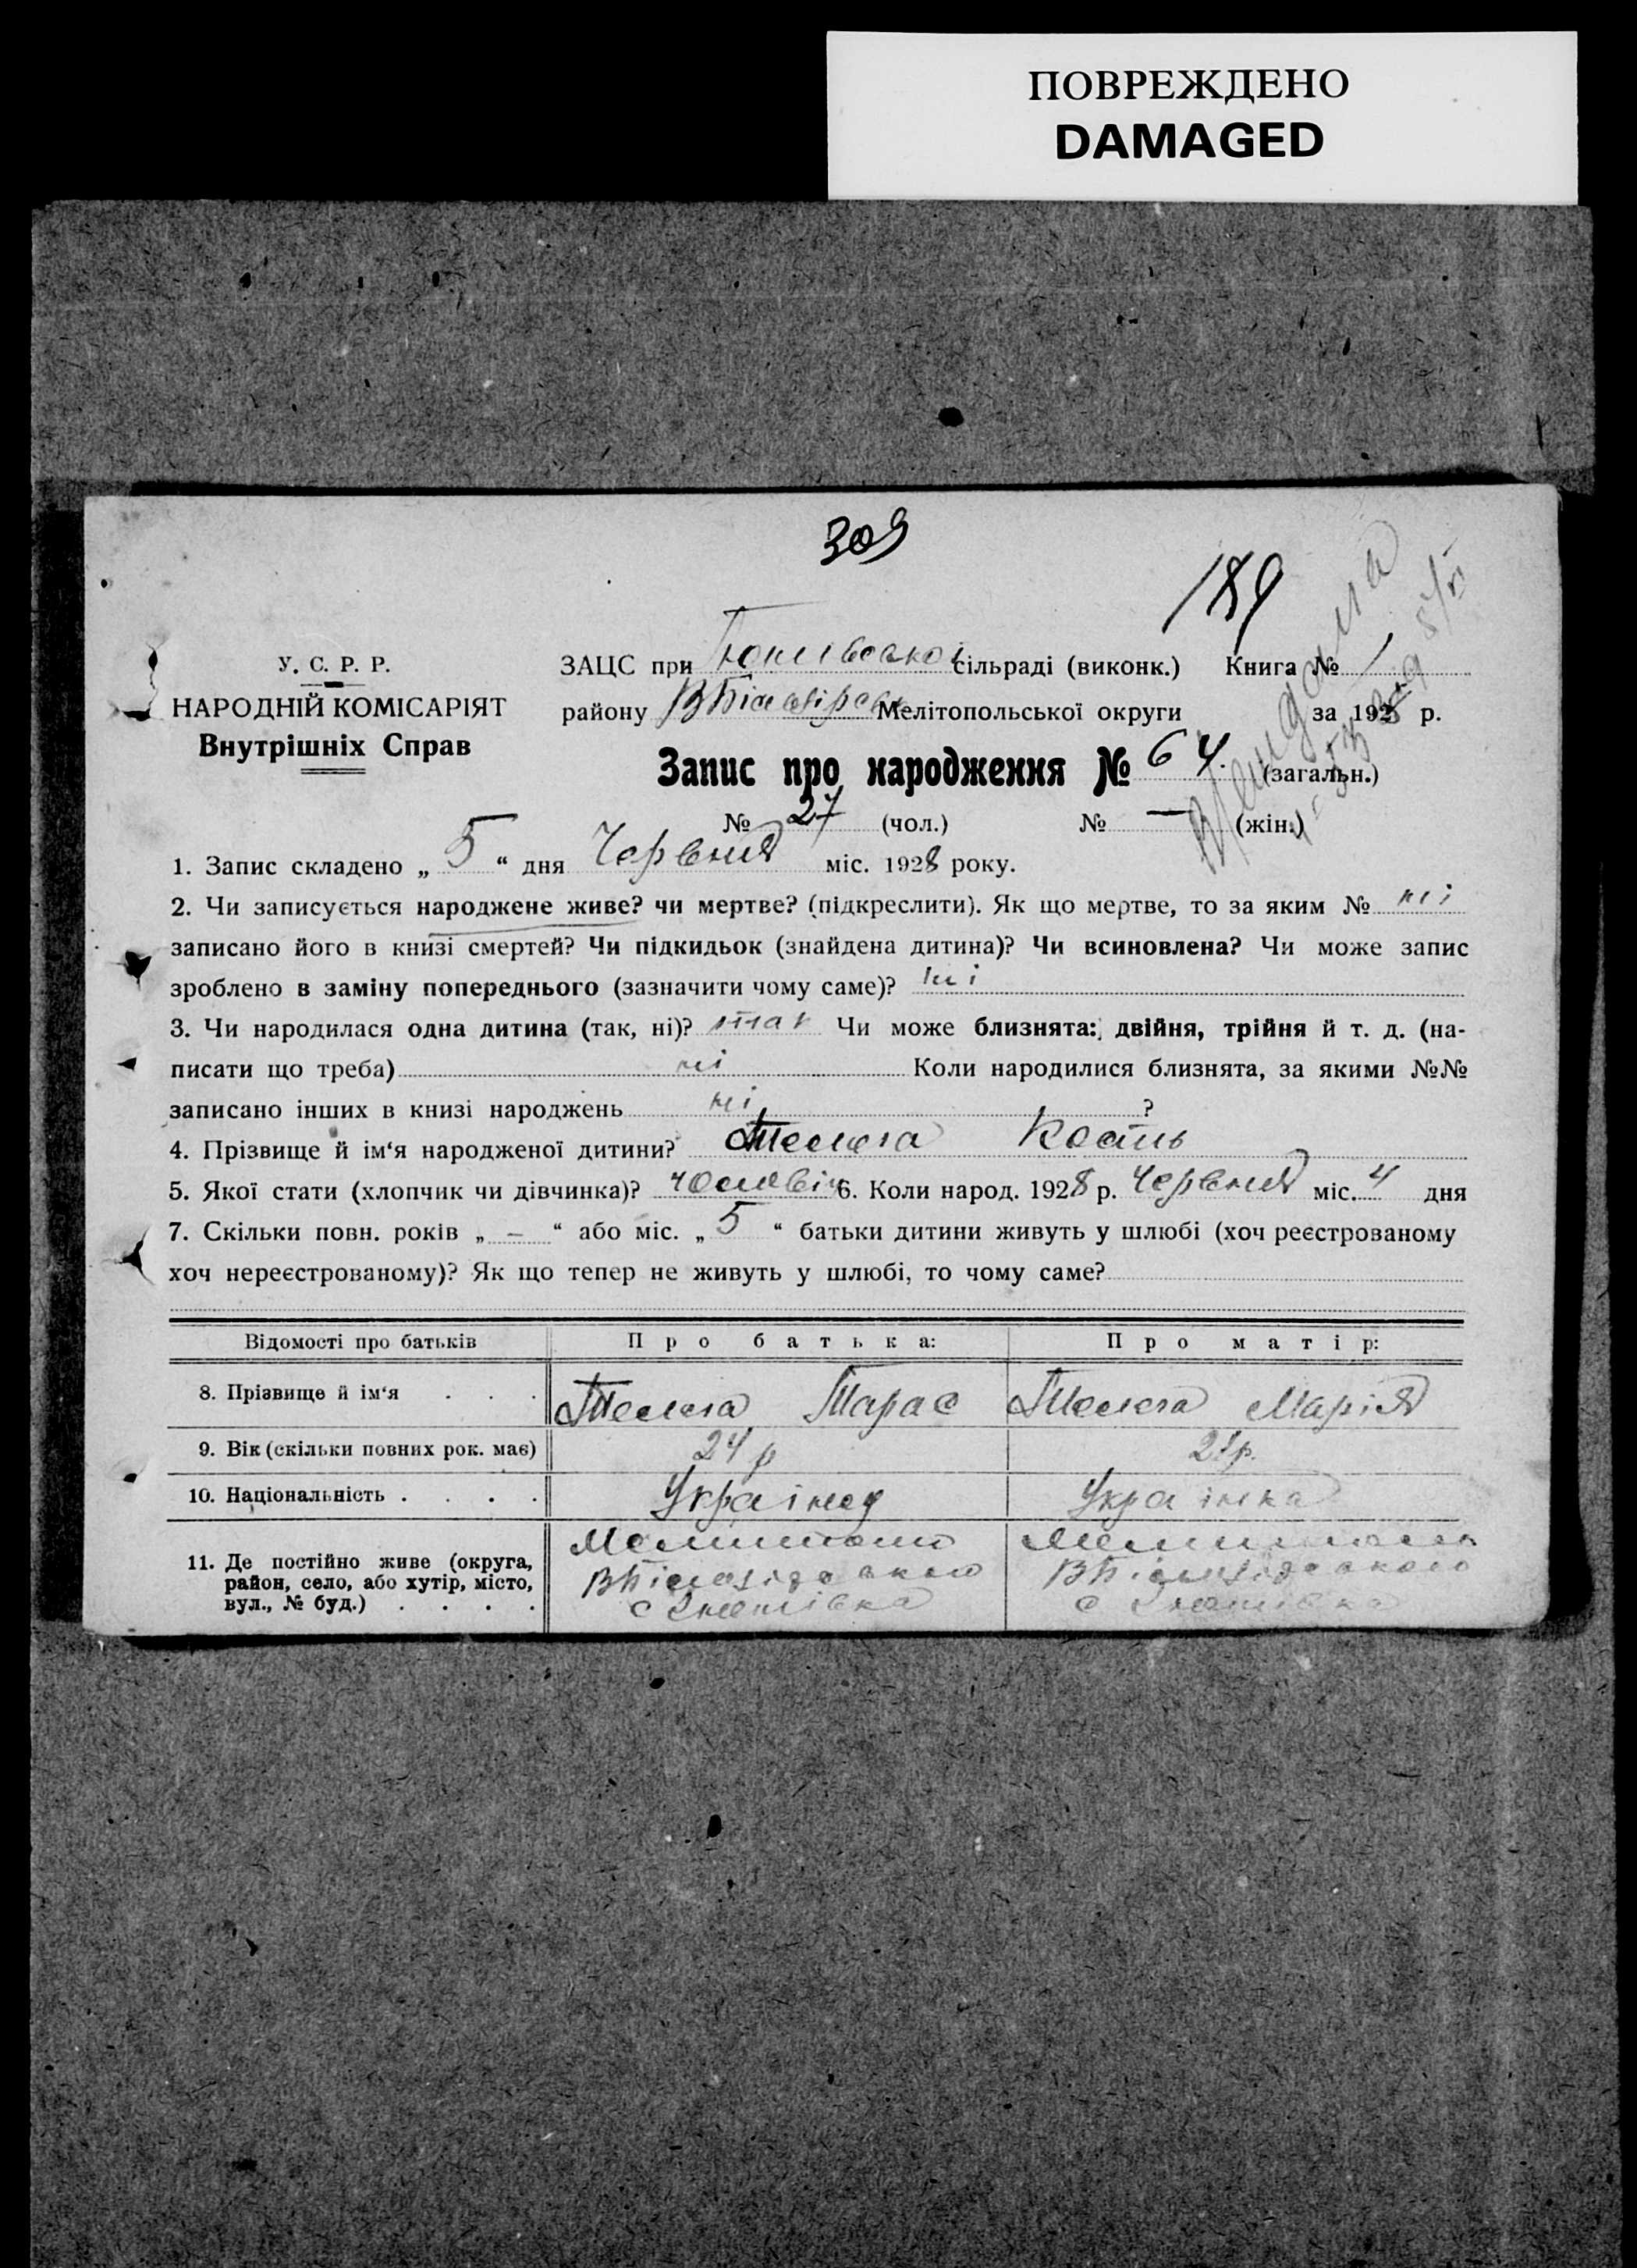 ПОВРЕЖДЕНО
DAMAGED
309
189
У. С. Р. Р.
НАРОДНІЙ КОМІСАРІЯТ
Внутрішніх Справ
ЗАЦС при сільраді (виконк.) Книга № 1
району Мелітопольської округи за 192 р.
Запис про народження № 64. (загальн.)
№ 27 (чол.) № — (жін.)
1. Запис складено „ 5 “ дня Червня міс. 1928 року.
2. Чи записується народжене живе? чи мертве? (підкреслити). Як що мертве, то за яким № ні
записано його в книзі смертей? Чи підкидьок (знайдена дитина)? Чи всиновлена? Чи може запис
зроблено в заміну попереднього (зазначити чому саме)? ні
3. Чи народилася одна дитина (так, ні)? так Чи може близнята: двійня, трійня й т. д. (на-
писати що треба) ні Коли народилися близнята, за якими №№
записано інших в книзі народжень ні ?
4. Прізвище й ім‘я народженої дитини? Кость
5. Якої стати (хлопчик чи дівчинка)? чоловіч 6. Коли народ. 1928 р. Червня міс. 4 дня
7. Скільки повн. років „ – “ або міс. „ 5 “ батьки дитини живуть у шлюбі (хоч реєстрованому
хоч нереєстрованому)? Як що тепер не живуть у шлюбі, то чому саме?
Відомості про батьків Про батька: Про матір:
8. Прізвище й ім‘я . . . Тарас Марія
9. Вік (скільки повних рок. має) 24 р
10. Національність . . . . Українец Українка
11. Де постійно живе (округа,
район, село, або хутір, місто,
вул., № буд.) . . . .